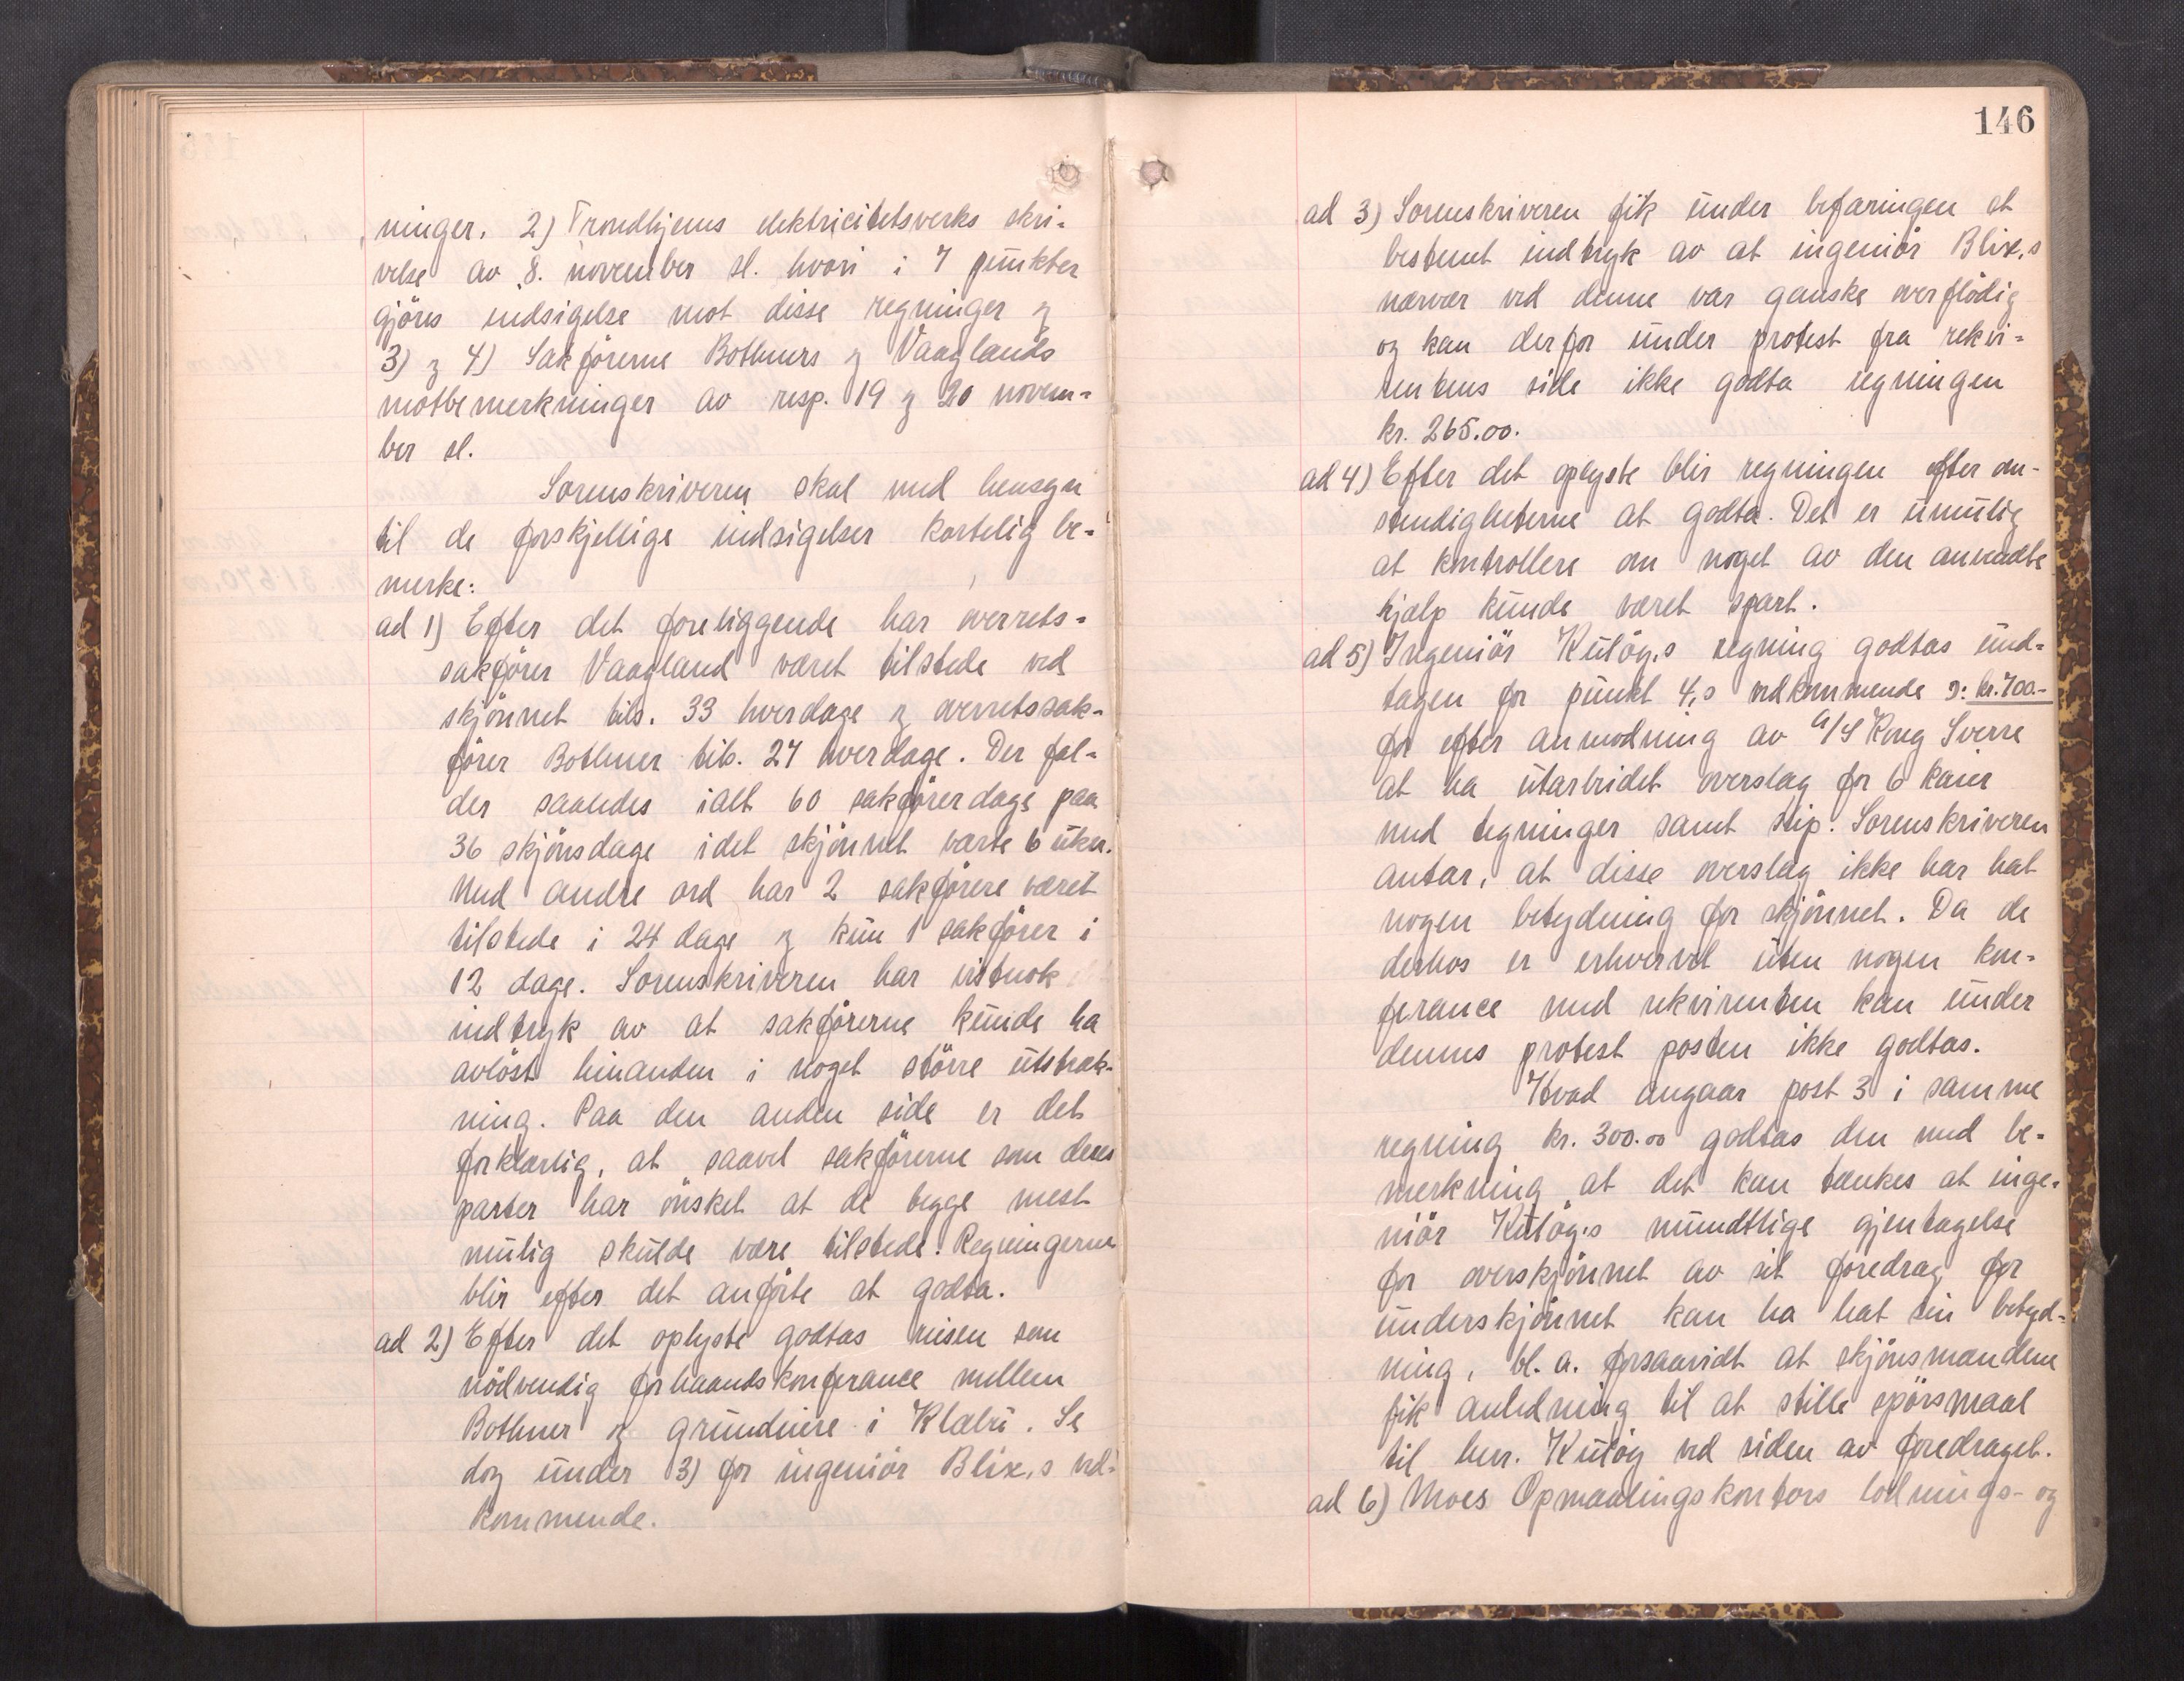 ninger. 2) Trondhjems elektricitetsverks skri-
velse av 8. november sl. hvori i 7 punkter
gjöres indsigelse mot disse regninger og
3) og 4) Sakförerne Bothners og Vaaglands
motbemerkninger av resp. 19 og 20 novem-
ber sl.
Sorenskriveren skal med hensyn
til de forskjellige indsigelser kortelig be-
merke:
ad 1) Efter det foreliggende har overrets-
sakförer Vaagland været tilstede ved
skjönnet tils. 33 hverdage og overretssak-
förer Bothner tils. 27 hverdage. Der fal-
der saaledes ialt 60 sakförerdage paa
36 skjönsdage idet skjönnet varte 6 uker.
Med andre ord har 2 sakförere været
tilstede i 24 dage og kun 1 sakförer i
12 dage. Sorenskriveren har vistnok
indtryk av at sakförerne kunde ha
avlöst hinanden i noget större utstræk-
ning. Paa den anden side er det
forklarlig, at saavel sakförerne som deres
parter har önsket at de begge mest
mulig skulde være tilstede. Regningerne
blir efter det anförte at godta.
ad 2) Efter det oplyste godtas reisen som
nödvendig forhaandskonferance mellem
Bothner og grundeiere i Klæbu. Se
dog under 3) for ingeniör Blix,s ved-
kommende.
146
ad 3) Sorenskriveren fik under befaringen et
bestemt indtryk av at ingeniör Blix,s
nærvær ved denne var ganske overflödig
og kan derfor under protest fra rekvi-
rentens side ikke godta regningen
kr. 265.00.
ad 4) Efter det oplyste blir regningen efter om-
stendigheterne at godta. Det er umulig
at kontrollere om noget av den anvendte
hjælp kunde været spart.
ad 5) Ingeniör Kulög,s regning godtas und-
tagen for punkt 4,s vedkommende ɔ: kr. 700.-
for efter anmodning av A/S Kong Sverre
at ha utarbeidet overslag for 6 kaier
med tegninger samt slip. Sorenskriveren
antar, at disse overslag ikke har hat
nogen betydning for skjönnet. Da de
derhos er erhvervet uten nogen kon-
ferance med rekvirenten kan under
dennes protest posten ikke godtas.
Hvad angaar post 3 i samme
regning kr. 300.00 godtas den med be-
merkning at det kan tænkes at inge-
niör Kulög,s mundtlige gjentagelse
for overskjönnet av sit foredrag for
underskjönnet kan ha hat sin betyd-
ning, bl. a. forsaavidt at skjönsmændene
fik anledning til at stille spörsmaal
til herr. Kulög ved siden av foredraget.
ad 6) Moes Opmaalingskontors lodnings- og